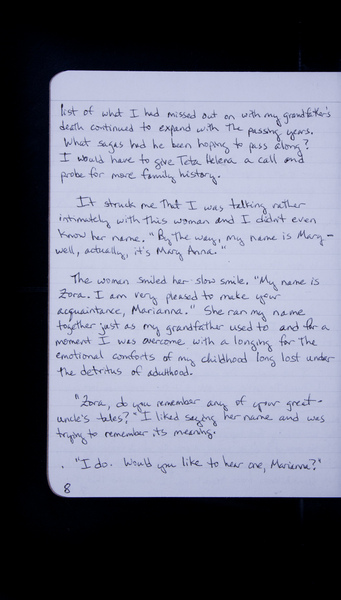 list of what I had missed out on with my grandfather's
death continued to expand with the passing years.
What sagas had he been hoping to pass along?
I would have to give Teta Helena a call and
probe for more family history.
It struck me that I was talking rather
intimately with this woman and I didn't even
know her name. "By the way, my name is Mary-
well, actually, it's Mary Anna."
The women smiled her slow smile. "My name is
Zora. I am very pleased to make your
acquaintance, Marianna." She ran my name
together just as my grandfather used to and for a
moment I was overcome with a longing for the
emotional comforts of my childhood long lost under
the detritus of adulthood.
"Zora, do you remember any of your great-
uncle's tales?" I liked saying her name and was
trying to remember its meaning.
. "I do. Would you like to hear one, Marianne?"
8